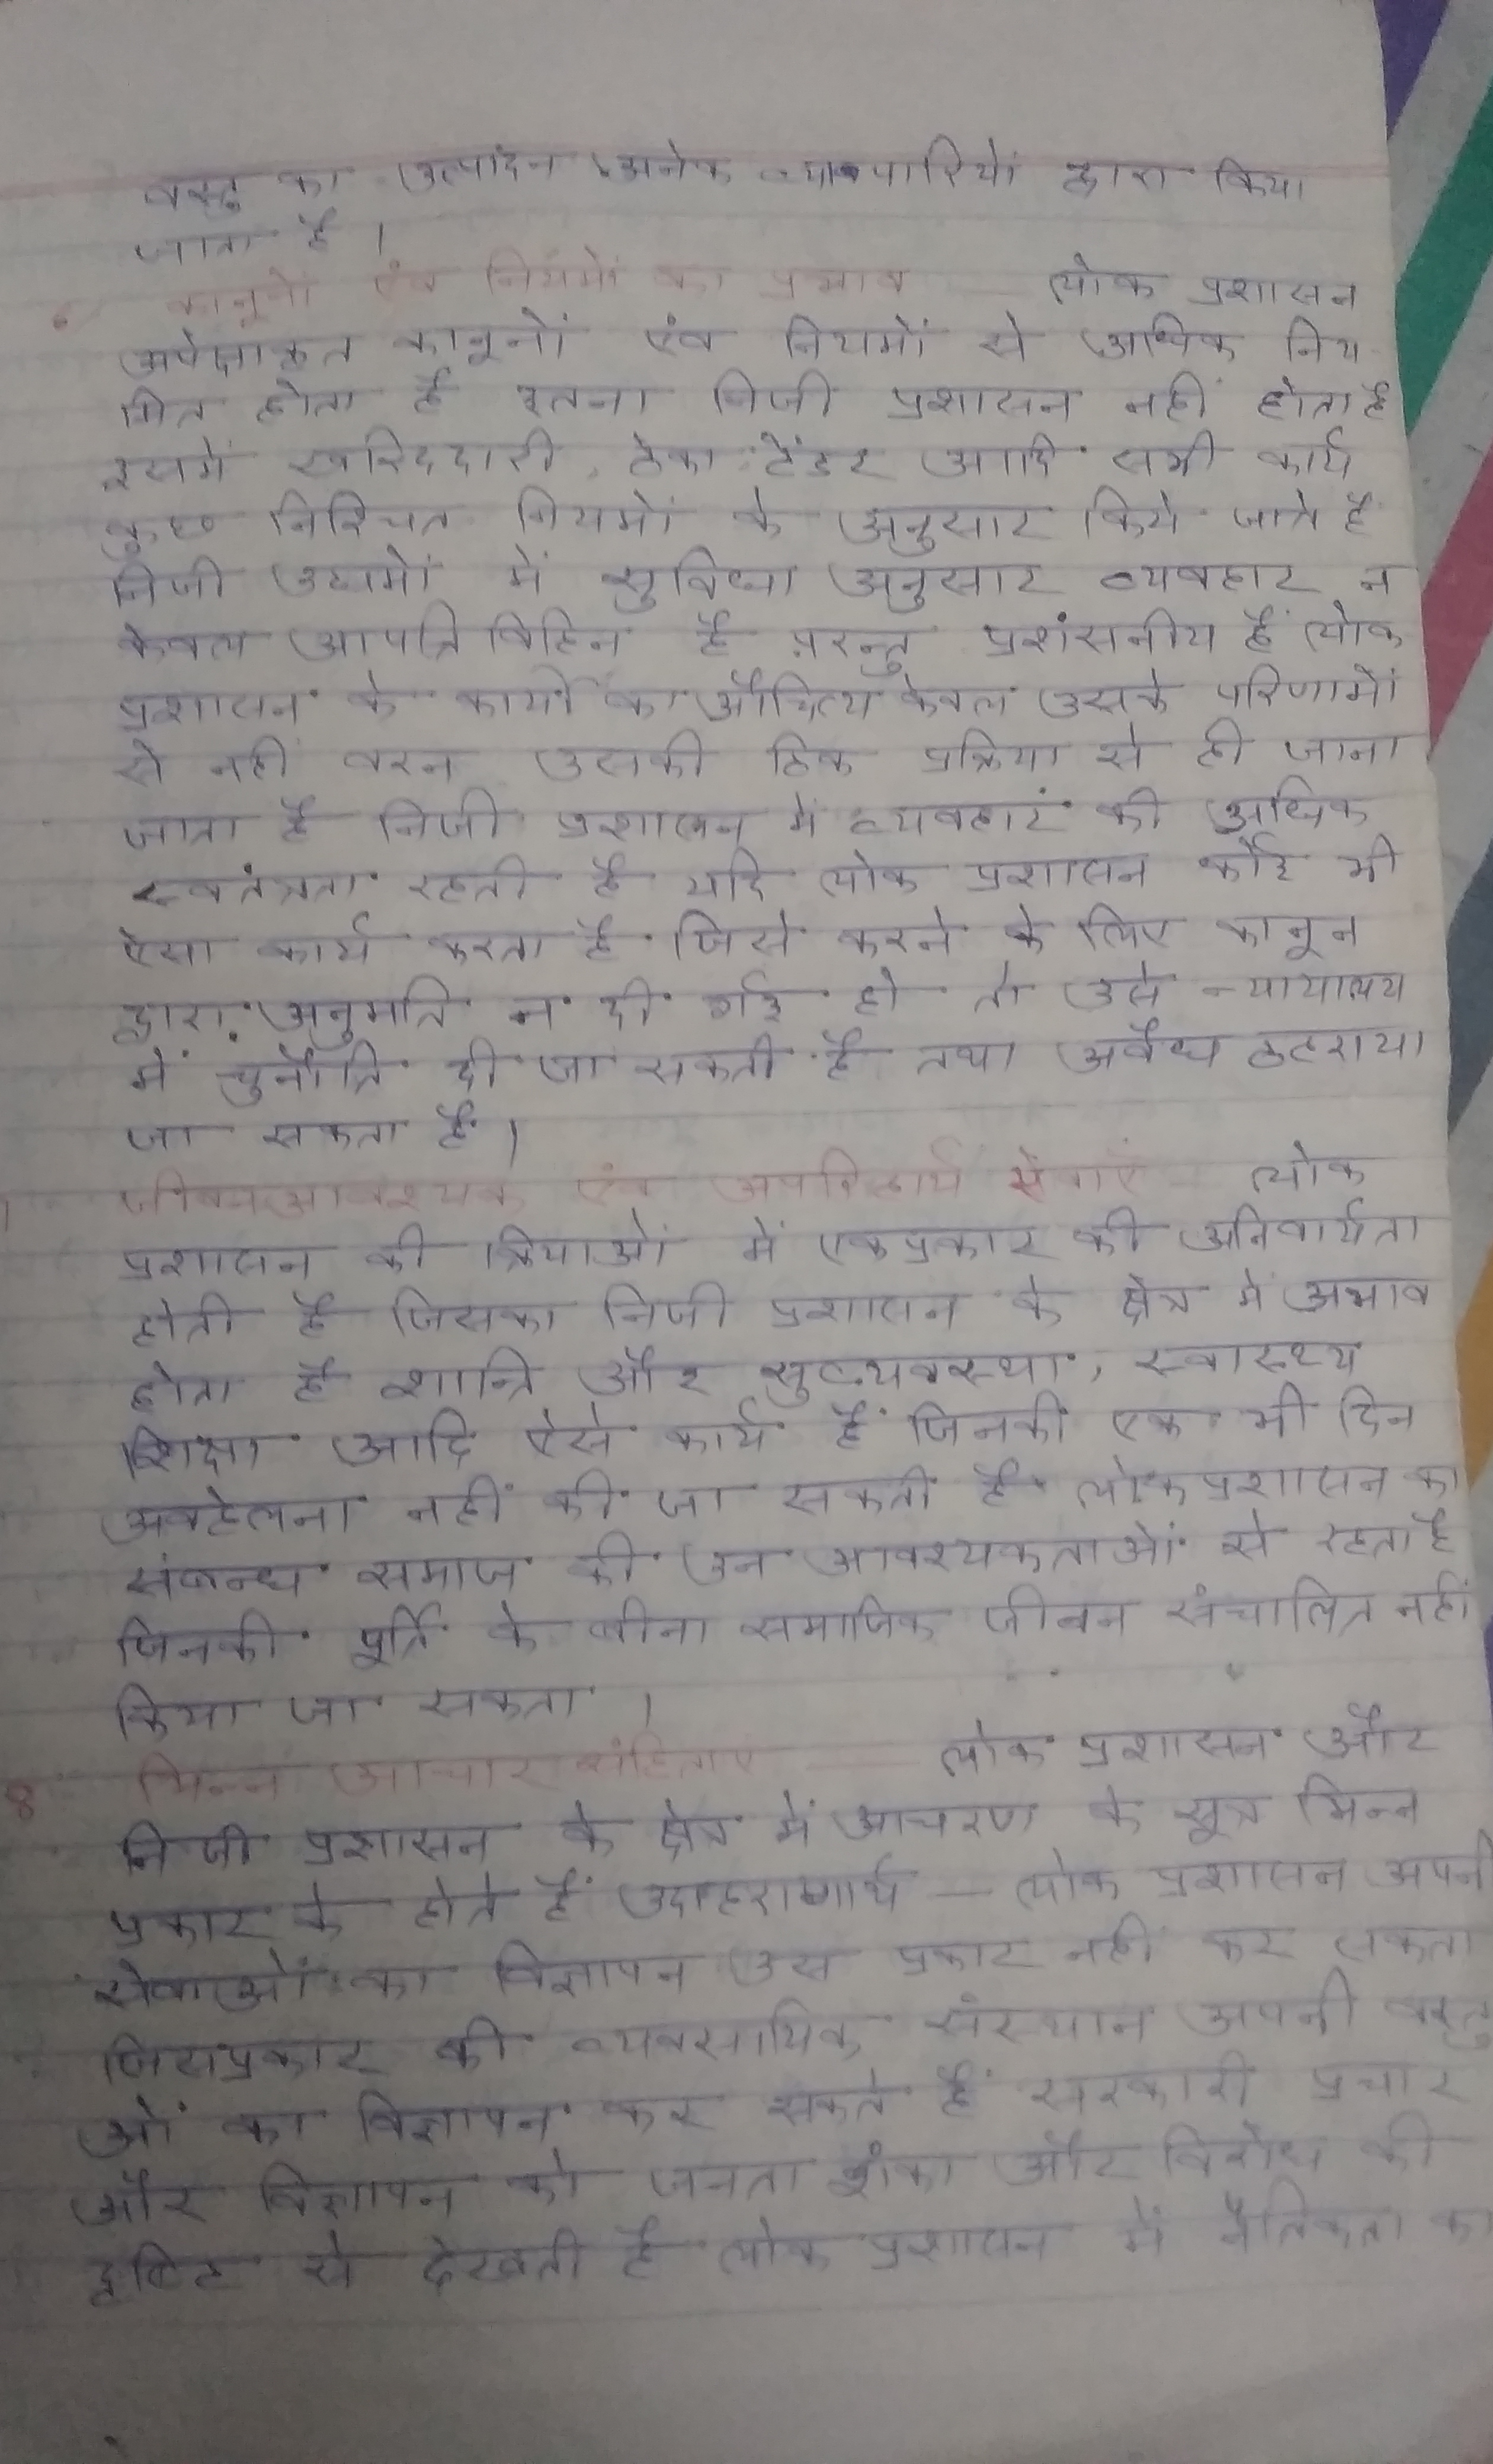 वस्तु का उत्पादन अनेक व्यापारियों द्वारा किया
जाता है ।
6 कानूनों एंव नियमों का प्रभाव — लोक प्रशासन
अपेक्षाकृत कानूनों एंव नियमों से अधिक निय
मित होता है इतना निजी प्रशासन नहीं होता है
इसमें खरिददारी, ठेका टेंडर आदि सभी कार्य
कुछ निश्चित नियमों के अनुसार किये जाते हैं
निजी उद्यमों में सुविधा अनुसार व्यवहार न
केवल आपत्ति विहिन है परन्तु प्रशंसनीय है लोक
प्रशासन के कार्यो का औचित्य केवल उसके परिणामों
से नही वरन उसकी ठिक प्रक्रिया से ही जाना
जाता है निजी प्रशासन में व्यवहार की अधिक
स्वतंत्रता रहती है यदि लोक प्रशासन कोई भी
ऐसा कार्य करता है जिसे करने के लिए कानून
द्वारा अनुमति न दी गई हो तो उसे न्यायालय
में चुनौति दी जा सकती है तथा अवैध ठहराया
जा सकता है ।
जीवनआवश्यक एंव अपरिहार्य सेंवाएं — लोक
प्रशासन की क्रियाओं में एकप्रकार की अनिवार्यता
होती है जिसका निजी प्रशासन के क्षेत्र मे अभाव
होता है शान्ति और सुव्यवस्था, स्वास्थ्य
शिक्षा आदि ऐसे कार्य हैं जिनकी एक भी दिन
अवहेलना नहीं की जा सकती है लोकप्रशासन का
संबन्ध समाज की उन आवश्यकताओं से रहता है
जिनकी पूर्ति के बीना समाजिक जीवन संचालित नहीं
किया जा सकता ।
8 भिन्न आचार संहिताएं — लोक प्रशासन और
निजी प्रशासन के क्षेत्र में आचरण के सूत्र भिन्न
प्रकार के होते हैं उदाहराणार्थ — लोक प्रशासन अपनी
सेवाओं का विज्ञापन उस प्रकार नही कर सकता
जिसप्रकार की व्यवसायिक संस्थान अपनी वस्तु
ओं का विज्ञापन कर सकते हैं सरकारी प्रचार
और विज्ञापन को जनता शंका और विरोध की
दृष्टि से देखती है लोक प्रशासन में नैतिकता का